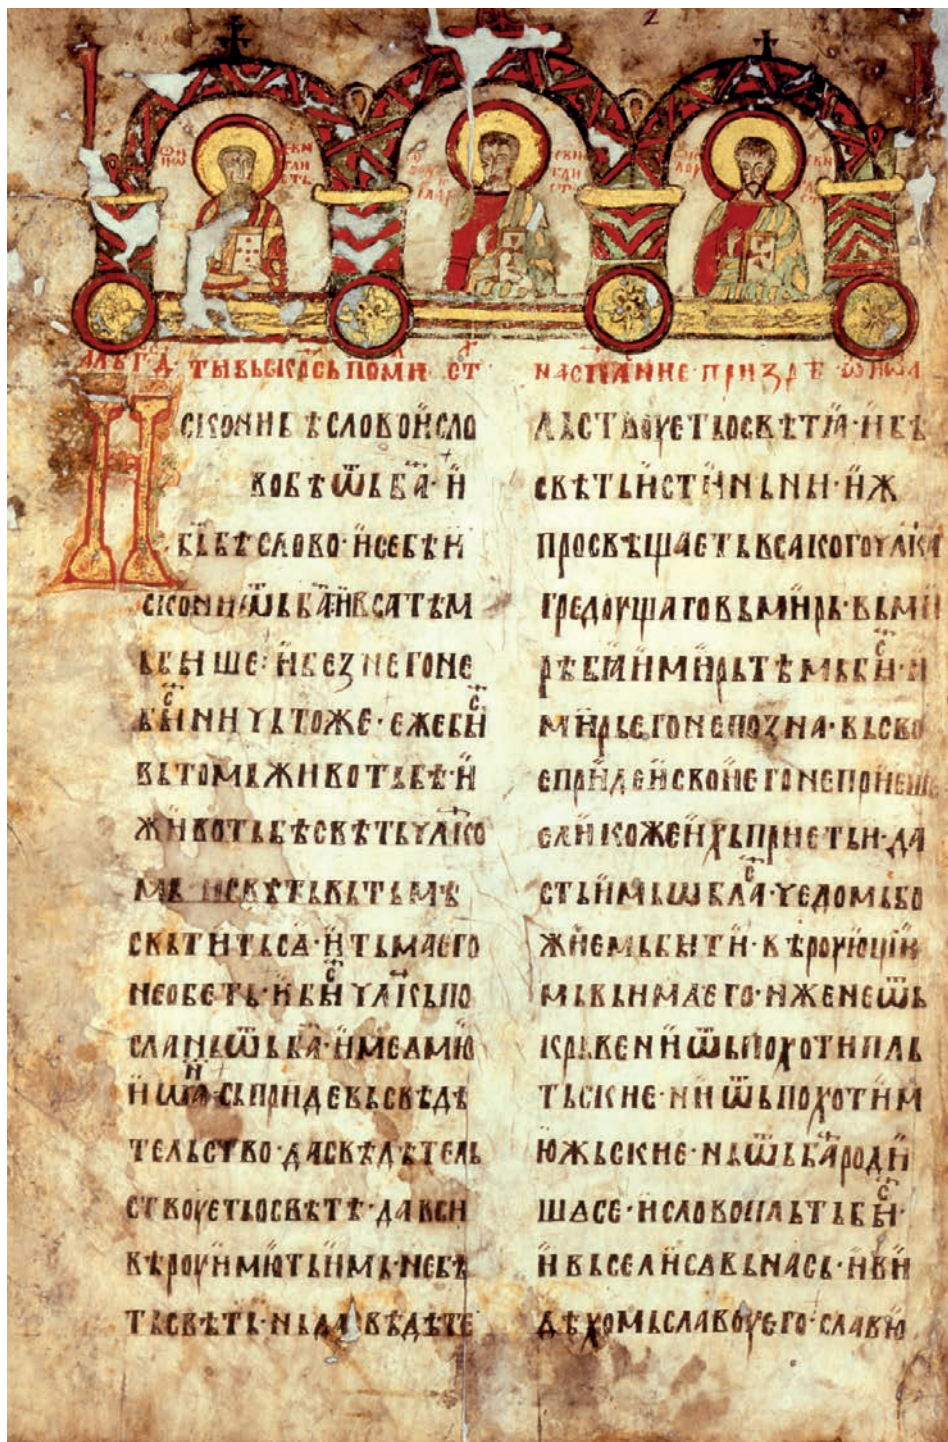 искони бѣ слово и сло
во бѣ ѿь ба҃ · и
бь҃ бѣ слово · и се бѣ и
скони ѿь ба҃ · и вса тѣм
ь бьı ше · и без него не
бьıс ничьтоже · еже бьıс
вь томь животь бѣ · и
животь бѣ свѣть чл҃ко
мь и свѣть вь тьмѣ
свьтить сѧ · и тьма его
не обеть · и бьıс чл҃кь по
слань ѿь ба҃ · име ѧмю
иѡань сь приде вь свѣдѣ
тельство · да свѣдѣтель
ствоуеть о свѣтѣ · да вси
вѣроу имють имь · не бѣ
ть свѣть · нь да свѣдѣте
льствоуеть о свѣтѣ · и бѣ
свѣть истиньнıи · иж
просвѣщаеть всакого чл҃ка
гредоущаго вь мирь · вь ми
рѣ бѣ и мирь тѣмь бьıс · и
мирь его не позна · вь сво
е приде и свои его не прие
елико же ихьприеть и · да
сть имь ѡбласть чедомь бо
жиемь бьıти · вѣроующии
мь вь имѧ его · иже не ѿь
крьве ни ѿь похоти пль
тьскıе · ни ѿь похоти м
южьскıе · нь ѿь ба҃ роди
шѧ се · и слово пльть бьıс ·
и вьсели сѧ вь нась · и ви
дѣхомь славоу его · славю